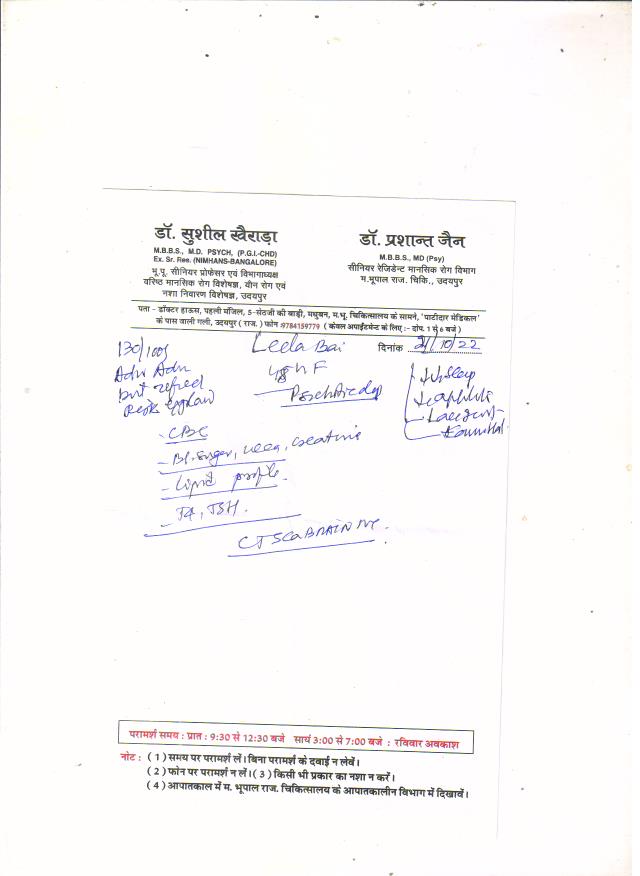 डॉ. सुशील खैराड़ा
M.B.B.S., M.D. PSYCH, (P.G.I.-CHD)
Ex. Sr. Res. (NIMHANS-BANGALORE)
भू.पू. सीनियर प्रोफेसर एवं विभागाध्यक्ष
वरिष्ठ मानसिक रोग विशेषज्ञ, यौन रोग एवं
नशा निवारण विशेषज्ञ, उदयपुर
डॉ. प्रशान्त जैन
M.B.B.S., MD (Psy)
सीनियर रेजिडेन्ट मानसिक रोग विभाग
म.भूपाल राज. चिकि., उदयपुर
पता - डॉक्टर हाऊस, पहली मंजिल, 5-सेठजी की बाड़ी, मधुबन, म.भू. चिकित्सालय के सामने, 'पाटीदार मेडिकल'
के पास वाली गली, उदयपुर ( राज. ) फोन :9784159779 ( केवल अपाईंटमेन्ट के लिए :- दोप. 1 से 6 बजे )
130/100
Leela Bai
दिनांक 21/10/22
Adv Adm
but refused
F
- CBC
- Bl. Sugar, urea, creatinine
- Lipid profile.
- T4, TSH.
CT Scan BRAIN
परामर्श समय : प्रात : 9:30 से 12:30 बजे सायं 3:00 से 7:00 बजे : रविवार अवकाश
नोट : ( 1 ) समय पर परामर्श लें। बिना परामर्श के दवाई न लेवें।
( 2 ) फोन पर परामर्श न लें। ( 3 ) किसी भी प्रकार का नशा न करें।
( 4 ) आपातकाल में म. भूपाल राज. चिकित्सालय के आपातकालीन विभाग में दिखावें।